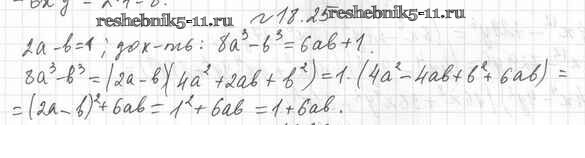 reshebnik5-11.ru
№18.25 reshebnik5-11.ru
2a-b=1; док-ть: 8a³-b³=6ab+1.
8a³-b³=(2a-b)(4a²+2ab+b²)=1·(4a²-4ab+b²+6ab)=
=(2a-b)²+6ab=1²+6ab=1+6ab.